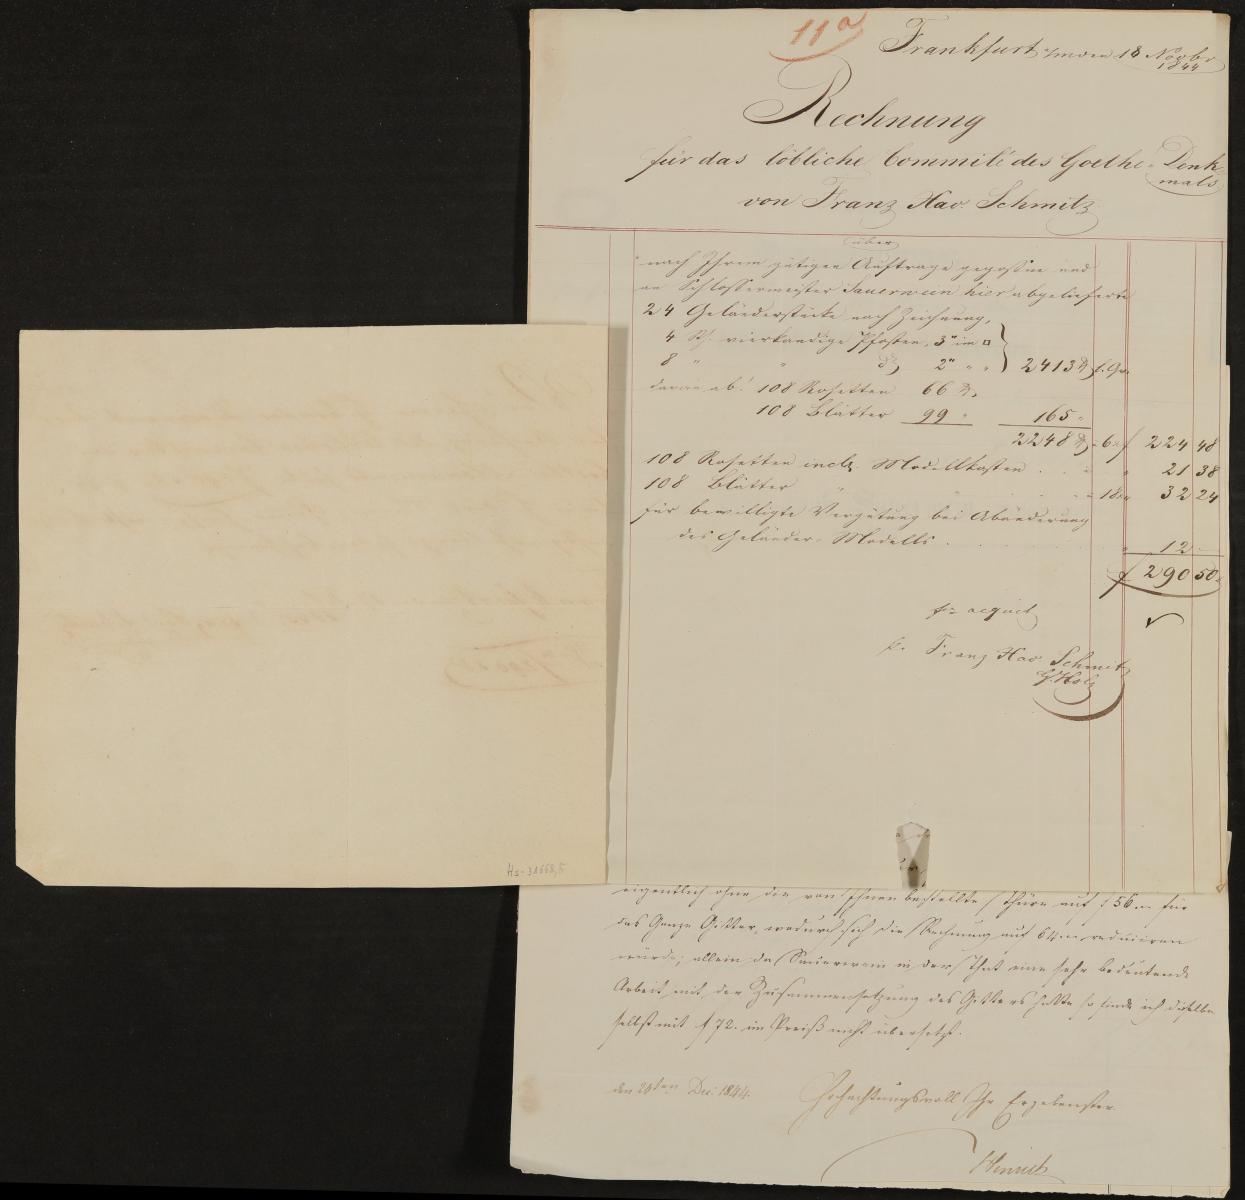 11a
Frankfurt a/m den 18 Novbr
1844
Rechnung
für das löbliche Commité des Goethe-Denk-
mals
von Franz Xav. Schmitz
über
nach Ihrem gütigen Auftrage gegossene und
an Schlossermeister Sauerwein hier abgelieferte
24 Geländerstücke nach Zeichnung,
4 St. vierkandige Pfosten, 3" im □
8 " " do 2" " " 2413 ℔
daran ab: 108 Rosetten 66 ℔.
108 Blätter 99 " 165 "
2248 ℔ 6 x f 224 48
108 Rosetten incl. Modellkosten . . " 21 38
108 Blätter " " . . . 18 " 32 24
für bewilligte Vergütung bei Abänderung
des Geländer-Modells . . . " 12 -
f 290 50
pr acquit
p. Franz Xav. Schmitz
G. Holz
Hs-31668,5
eigentlich ohne die von Ihnen bestellte Thüre auf f 56 für
das Ganze Gitter, wodurch sich die Rechnung auf 64 reduciren
würde; allein da Sauerwein in der That eine sehr bedeutende
Arbeit mit der Zusammensetzung des Gitters hatte so finde ich dieselbe
selbst mit f 72. im Preiß nicht übersetzt.
den 20ten Dec. 1844. Hochachtungsvoll Ihr Ergebenster
Heinrich